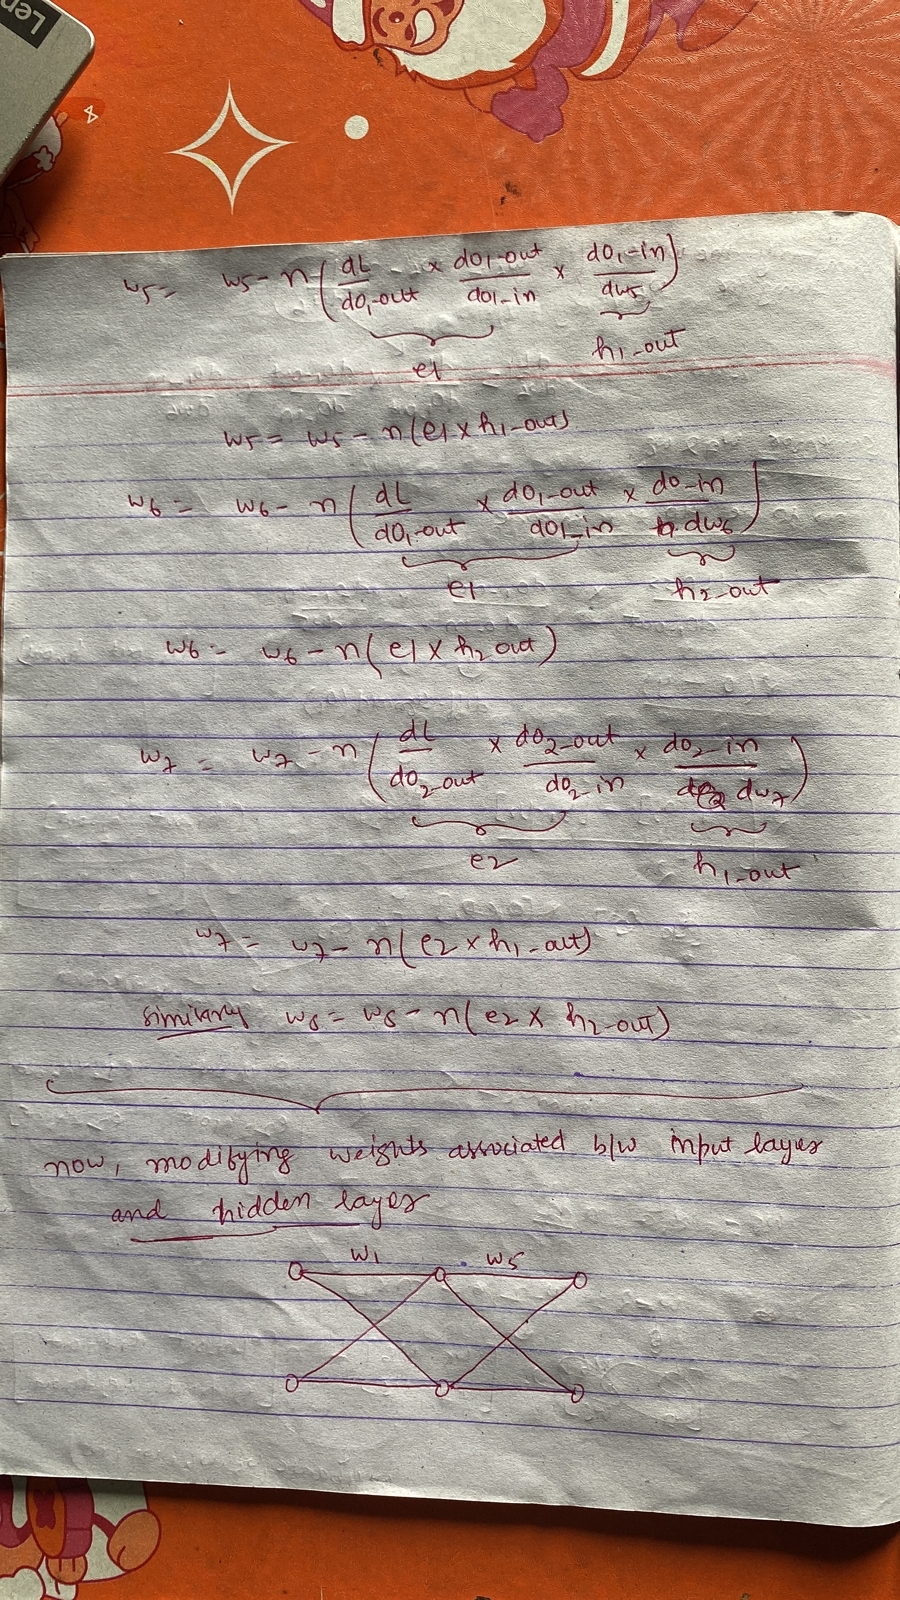 Len
w5 = w5 - n(dL/do1-out × do1-out/do1-in × do1-in/dw5)
e1 h1-out
w5 = w5 - n(e1 × h1-out)
w6 = w6 - n(dL/do1-out × do1-out/do1-in × do-in/dw6)
e1 h2-out
w6 = w6 - n(e1 × h2 out)
w7 = w7 - n(dL/do2-out × do2-out/do2-in × do2-in/dw7)
e2 h1-out
w7 = w7 - n(e2 × h1-out)
similary w8 = w8 - n(e2 × h2-out)
now, modifying weights associated b/w input layer
and hidden layer
w1 w5